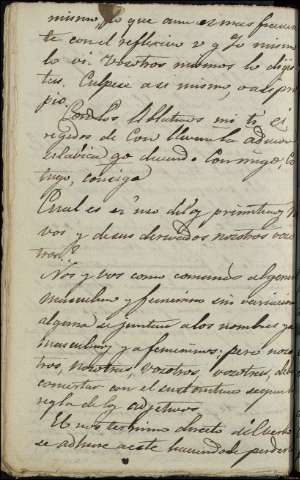 mismo, lo que aun es mas frecuen
te con el reflexivo v g Yo mismo
lo vi. Vosotros mismos lo dijis
teis, Culpese a se mismo, o a se pro
pio.
Los ablativos mi ti si
regidos de Con llevan la
silabica go diciendo Conmigo, Con
tigo, consigo
Cual es el uso de los primitivos
vos y de sus derivados nosotros voso
tros?
Nos y vos como comunes al genero
masculino y femenino sin variacion
alguna se juntan a los nombres ya
masculinos y a femeninos; pero noso
tros, nosotras, vosotros, vosotras, de
concertar con el sustantivo segun
regla de los adjetivos
El nos termino directo del verbo
se adhiere a este haciendole perder